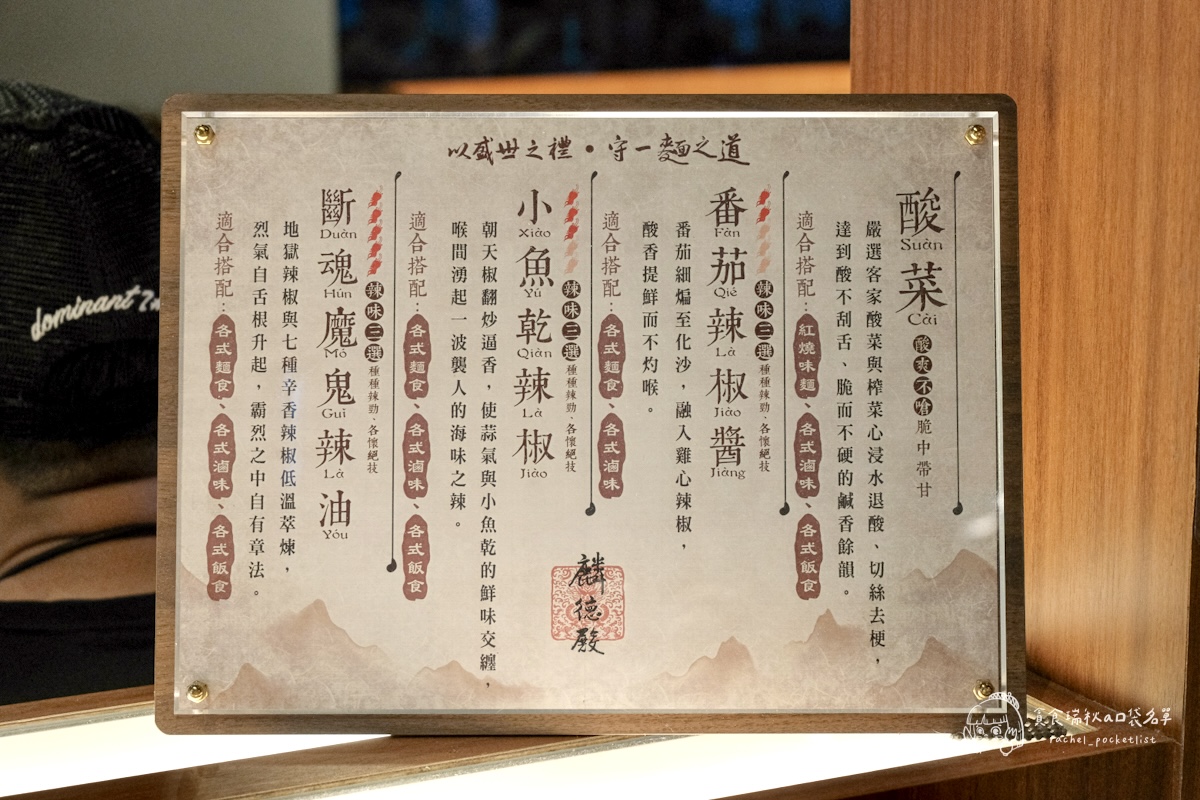 以盛世之禮•守一麵之道
酸菜
Suàn Cài
酸爽不嗆 脆中帶甘
嚴選客家酸菜與榨菜心浸水退酸、切絲去梗，
達到酸不刮舌、脆而不硬的鹹香餘韻。
適合搭配：紅燒味麵、各式滷味、各式飯食
番茄辣椒醬
Fān Qié Là Jiāo Jiàng
辣味三選 種種辣勁、各懷絕技
番茄細煸至化沙，融入雞心辣椒，
酸香提鮮而不灼喉。
適合搭配：各式麵食、各式滷味
小魚乾辣椒
Xiǎo Yú Qiàn Là Jiāo
辣味三選 種種辣勁、各懷絕技
朝天椒翻炒逼香，使蒜氣與小魚乾的鮮味交纏，
喉間湧起一波襲人的海味之辣。
適合搭配：各式麵食、各式滷味、各式飯食
斷魂魔鬼辣油
Duàn Hún Mó Guǐ Là Yóu
辣味三選 種種辣勁、各懷絕技
地獄辣椒與七種辛香辣椒低溫萃煉，
烈氣自舌根升起，霸烈之中自有章法。
適合搭配：各式麵食、各式滷味、各式飯食
麟德殿
貪食瑞秋a口袋名單
rachel_pocketlist